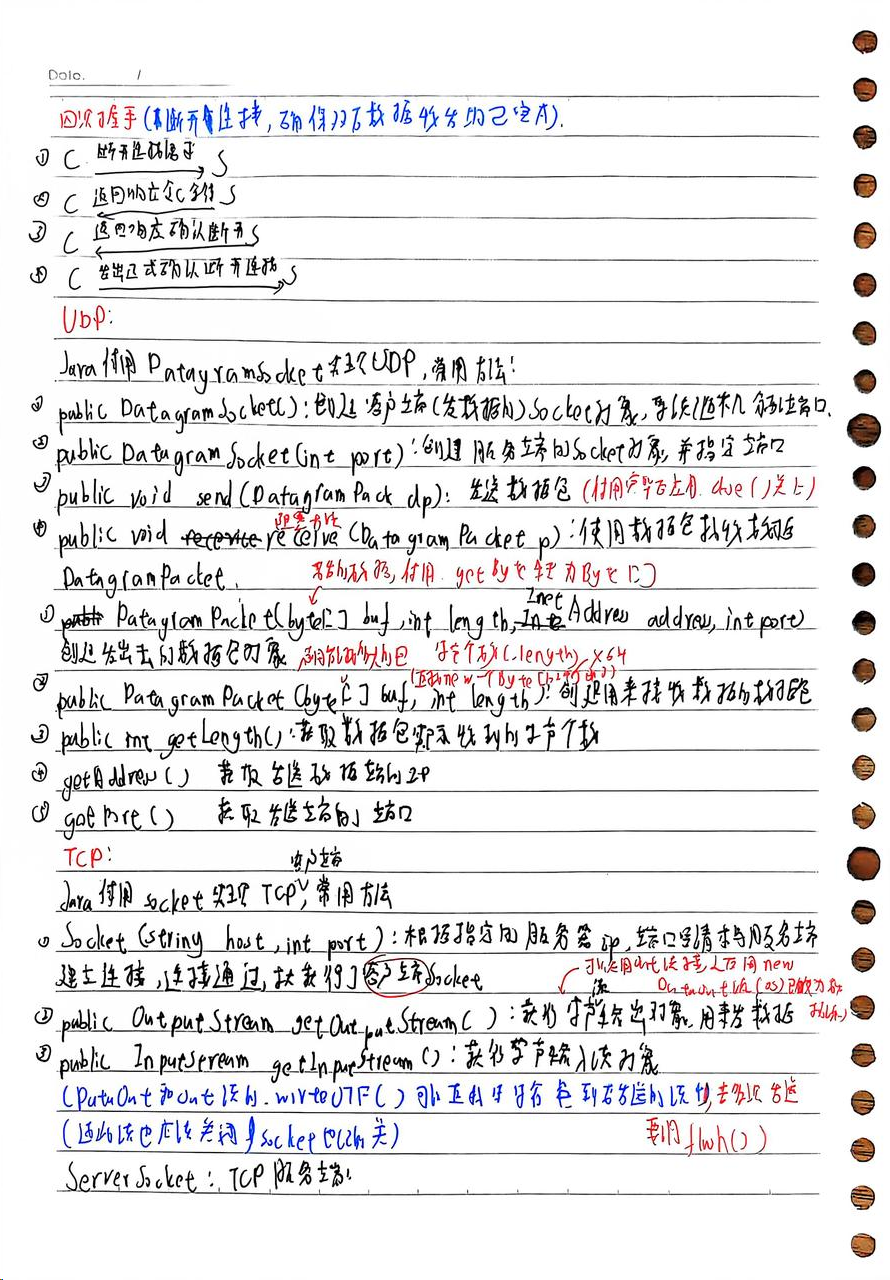 Date.        /
四次握手(断开连接,确保双方数据收发均已完成).
① C 断开连接请求 S
② C 返回响应令C等待 S
③ C 返回响应确认断开 S
④ C 发出正式确认断开连接 S
UDP:
Java使用DatagramSocket实现UDP,常用方法:
① public DatagramSocket():创建客户端(发数据的)Socket对象,系统随机分配端口.
② public DatagramSocket(int port):创建服务端的Socket对象,并指定端口
③ public void send(DatagramPack dp): 发送数据包(使用完毕后应用.close()关上)
阻塞方法
④ public void receive(DatagramPacket p):使用数据包接收数据
DatagramPacket. 发的数据,使用.getByte转为Byte[]
Inet
① DatagramPacket(byte[] buf,int length, Address address, int port)
创建发出去的数据包对象 字节个数(.length) ×64
② public DatagramPacket(byte[] buf, int length):创建用来接收数据的数据包
③ public int getLength():获取数据包实际收到的字节个数
④ getAddress() 获取发送数据端的IP
⑤ getPort() 获取发送端的端口
TCP: 客户端
Java使用socket实现TCP,常用方法
① Socket(string host,int port):根据指定的服务器ip,端口号请求与服务端
建立连接,连接通过,就获得了客户端Socket
流 new
② public OutputStream getOutputStream():获得字节输出对象,用来发数据
③ public InputStream getInputStream():获得字节输入流对象
(DataOut和out流的.writeUTF()可以
(这些流也应该关闭,socket也得关) 要用flush()
ServerSocket:TCP服务端: